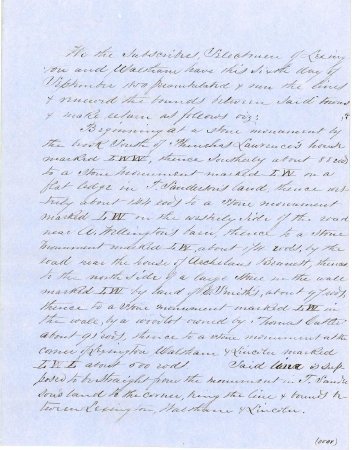 We the Subscribers, Selectmen of Lexing
ton and Waltham have this Sixth day of
September 1850 perambulated & run the lines
& renewed the bounds between Said towns
& make return as follows viz;
Beginning at a Stone monument by
the brook South of Phinehas Lawrence's house
marked L W W, thence Southerly about 88 rods
to a Stone monument marked L W on a
flat ledge in J. Sanderson's land, thence wes
terly about 144 rods to a Stone monument
marked L W on the westerly Side of the road
near W. Wellington's barn, thence to a Stone
monument marked L W, about 94 rods, by the
road near the house of Archelaus Bennett, thence
to the north side of a large Stone in the wall
marked L W by land of Smith's, about 97 rods,
thence to a Stone monument marked L W in
the wall, by a woodlot owned by Thomas Cutter
about 91 rods, thence to a Stone monument at the
corner of Lexington Waltham & Lincoln marked
L W L about 500 rods Said land is sup
posed to be Straight from the monument in J. Sander
son's land to the corner, being the line & bounds be
tween Lexington, Waltham & Lincoln.
(over)